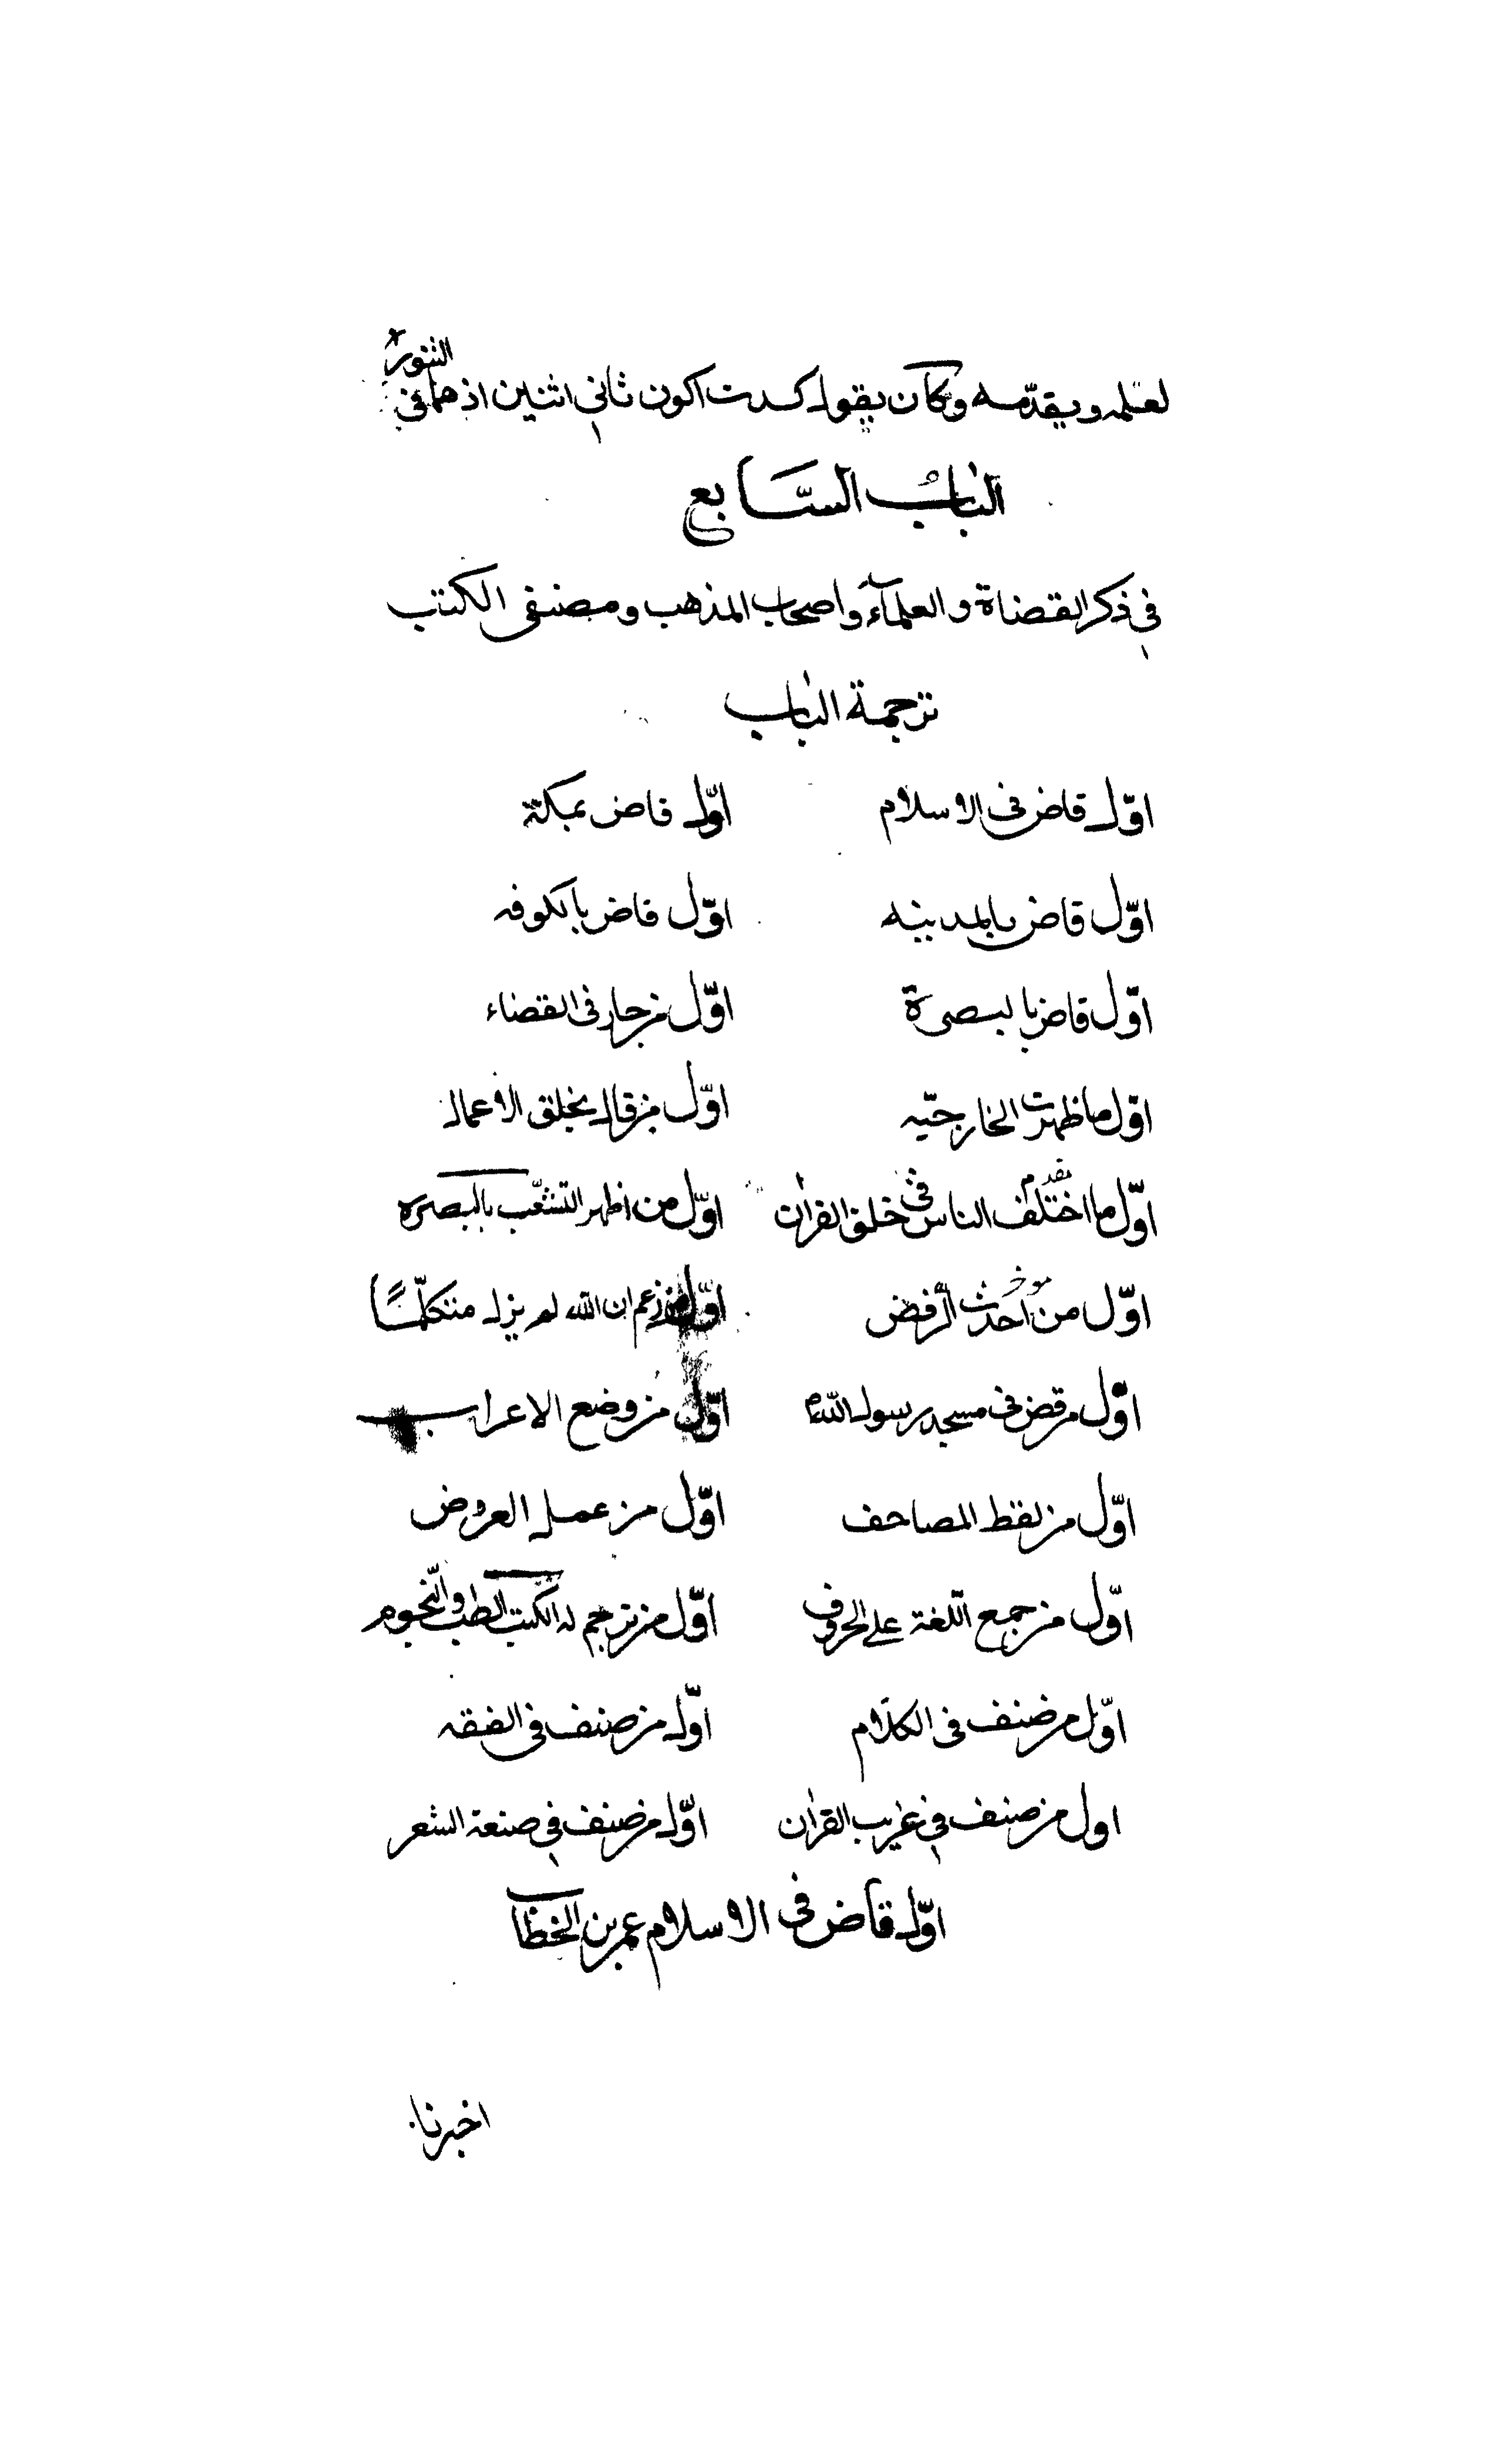 لعلمه ويقدّمه وكان يقول كدت اكون ثاني اثنين اذ هما في التنور
الباب السَّابع
في ذكر القضاة والعلمآء واصحاب المذهب ومصنفى الكتب
ترجمة الباب
اوّل قاض فى الاسلام اوّل قاض بمكة
اوّل قاض بالمدينه اوّل قاض بالكوفه
اوّل قاض بالبصرة اوّل من جار فى القضاء
اوّل ما ظهرت الخارجيّه اوّل من قال بخلق الاعمال
اوّل ما اختلف الناس فى خلق القرآن اوّل من اظهر التشعّب بالبصره
مقدم
اوّل من احدث الرفض اوّل من زعم ان الله لم يزل متكلّمًا
موخر
اوّل من قص فى مسجد رسول الله اوّل من وضع الاعراب
اوّل من نقط المصاحف اوّل من عمل العروض
اوّل من جمع اللغة على الحروف اوّل من ترجم له الكتب الطب والنّجوم
اوّل من صنف فى الكلام اوّل من صنف فى الفقه
اول من صنف في غريب القرآن اوّل من صنف في صنعة الشعر
اوّل قاض فى الاسلام عمر بن الخطاب
اخبرنا